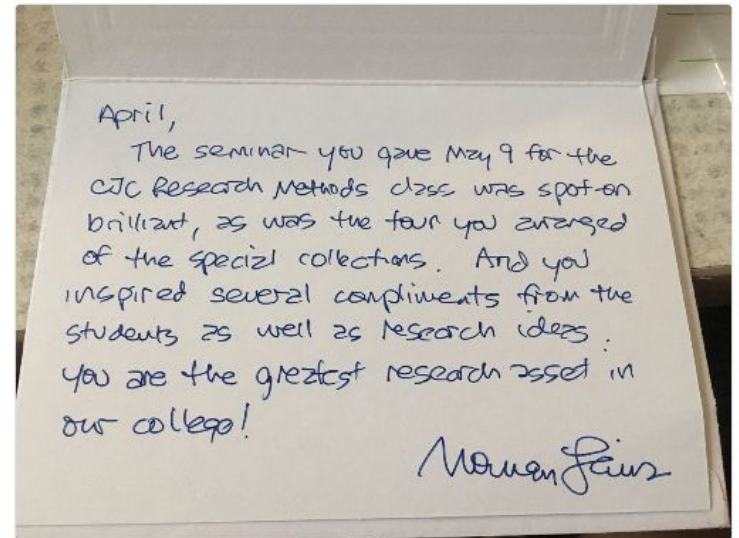 April,
The seminar you gave May 9 for the
CJC Research Methods class was spot-on
brilliant, as was the tour you arranged
of the special collections. And you
inspired several compliments from the
students as well as research ideas.
You are the greatest research asset in
our college!